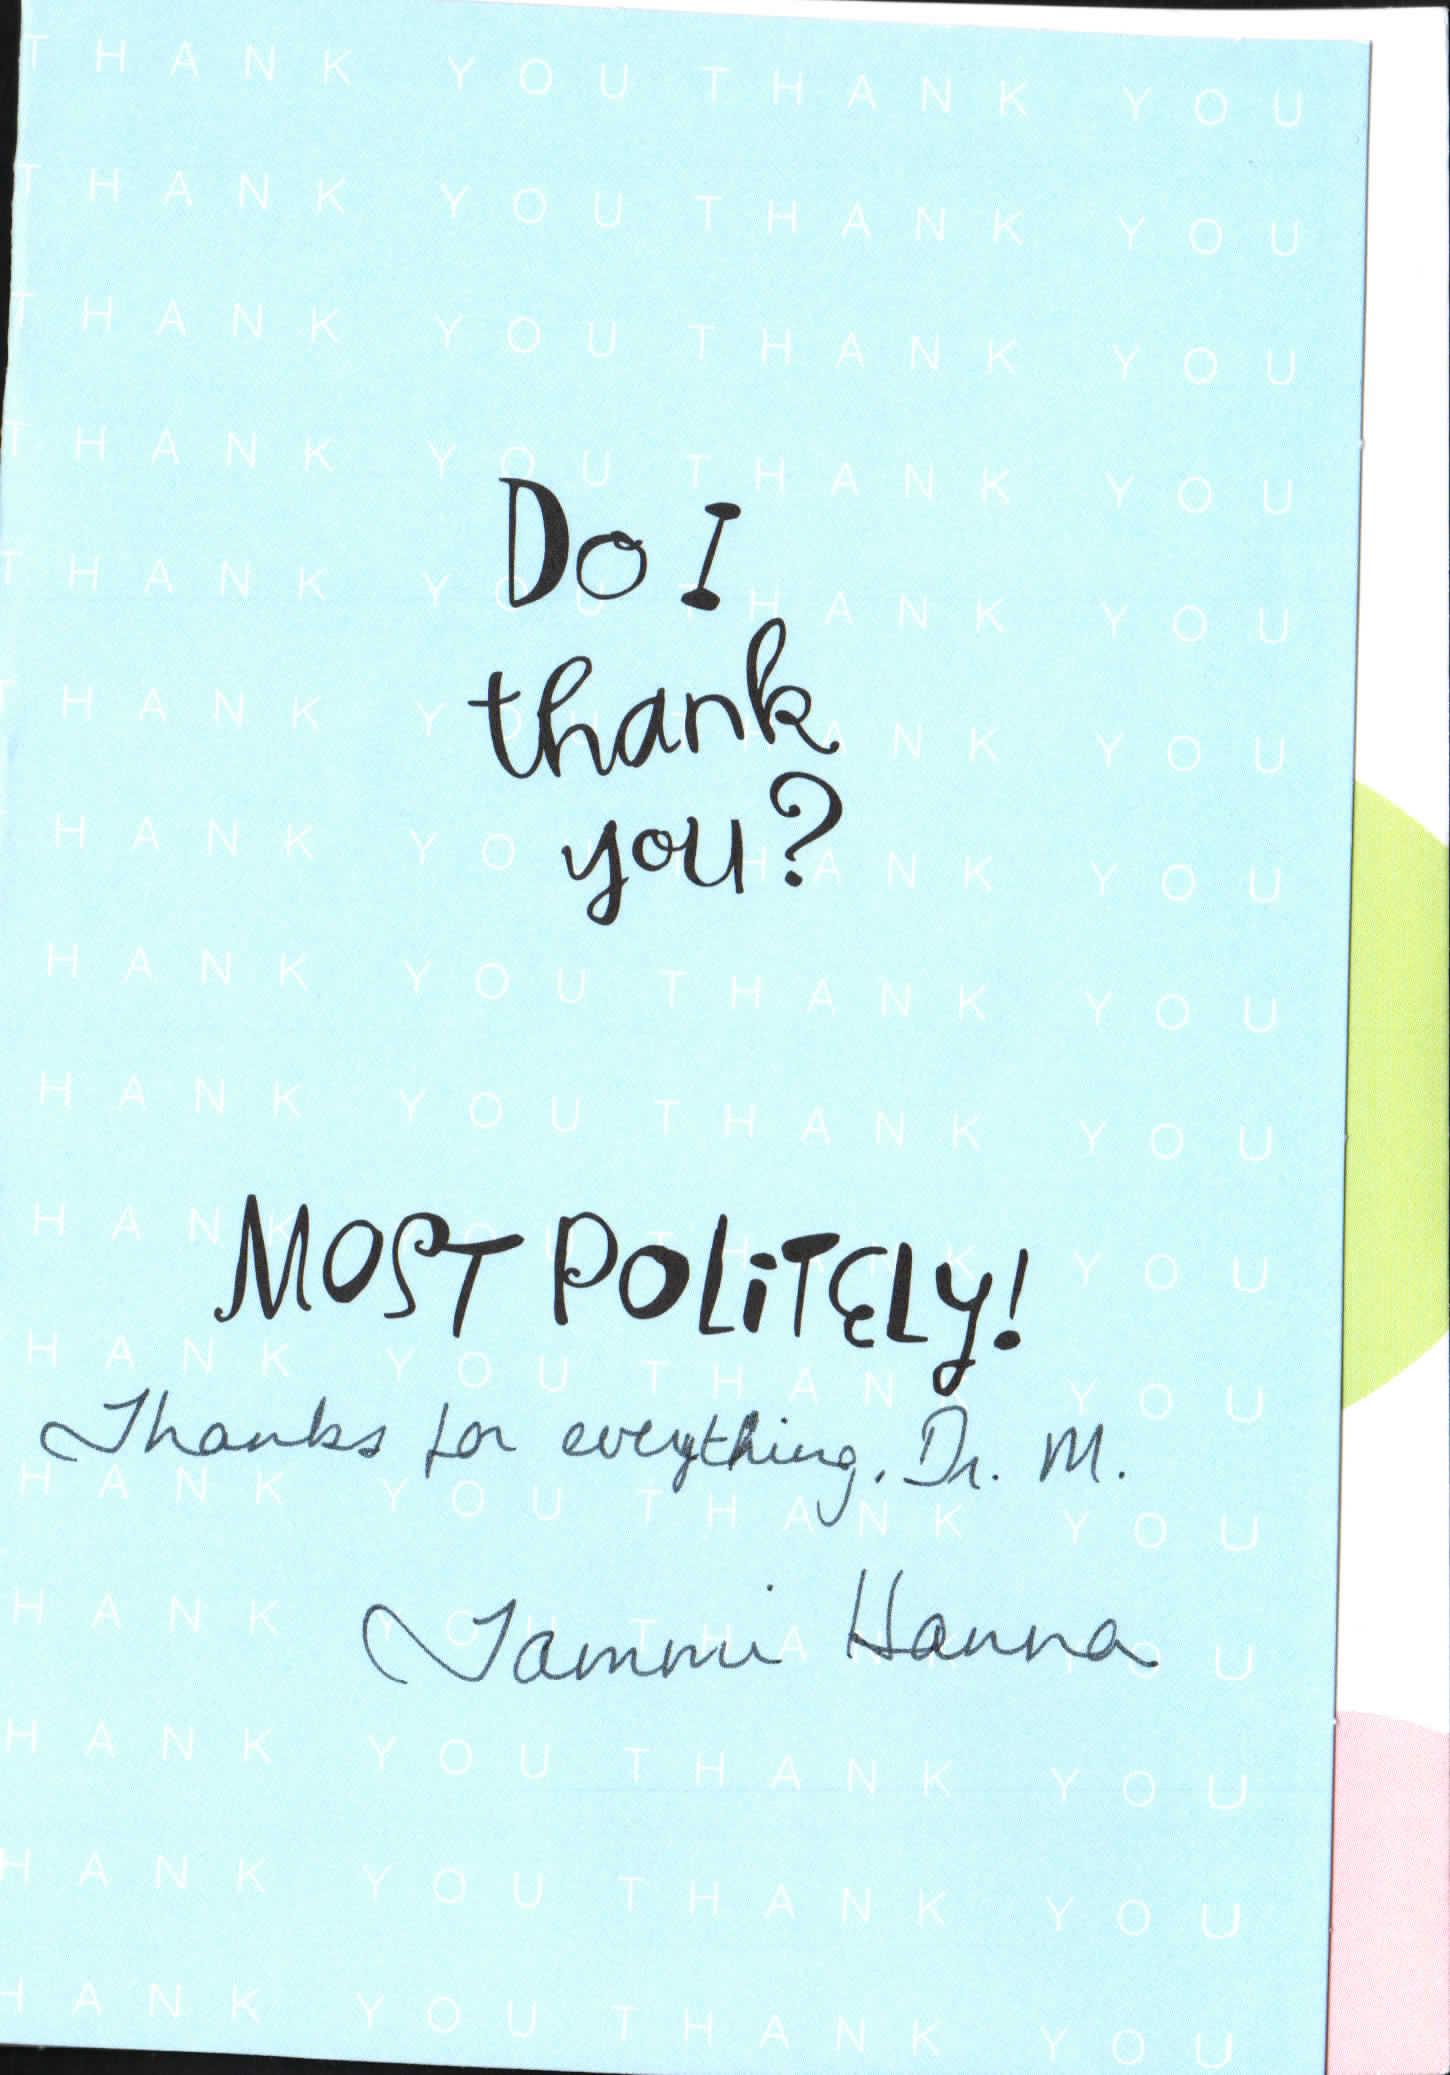 THANK YOU THANK YOU
THANK YOU THANK YOU
THANK YOU THANK YOU
THANK YOU THANK YOU
Do I
THANK YOU THANK YOU
thank
THANK YOU THANK YOU
you?
HANK YOU THANK YOU
HANK YOU THANK YOU
HANK YOU THANK YOU
MOST POLiTELy!
HANK YOU THANK YOU
HANK YOU THANK YOU
Thanks for everything, Dr. M.
HANK YOU THANK YOU
Tammi Hanna
HANK YOU THANK YOU
HANK YOU THANK YOU
HANK YOU THANK YOU
HANK YOU THANK YOU